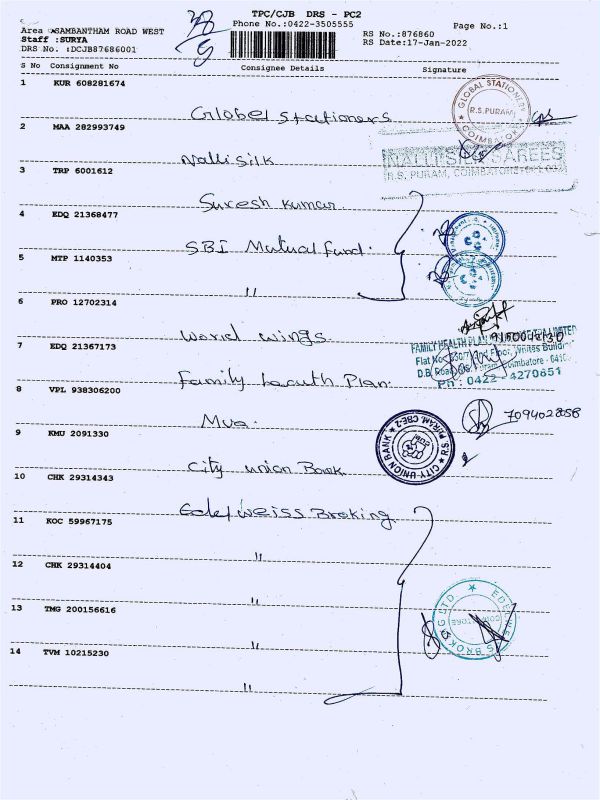 TPC/CJB DRS - PC2
Area :SAMBANTHAM ROAD WEST
Phone No.:0422-3505555
Page No.:1
Staff :SURYA
RS No.:876860
DRS No. :DCJB87686001
RS Date:17-Jan-2022
S No Consignment No Consignee Details Signature
1 KUR 608281674
Global Stationers
GLOBAL STATIONERY
R.S. PURAM
COIMBATORE
2 MAA 282993749
Nalli Silk
NALLI SILK SAREES
R.S. PURAM, COIMBATORE
3 TRP 6001612
Suresh Kumar
4 EDQ 21368477
SBI Mutual Fund.
5 MTP 1140353
"
6 PRO 12702314
World Wings
7 EDQ 21367173
FAMILY HEALTH PLAN
Flat No
Floor,
D.B. Road, Coimbatore
Ph : 0422 - 4270651
Family Health Plan
8 VPL 938306200
Mua.
9 KMU 2091330
City Union Bank
CITY UNION BANK
R.S. PURAM, CBE-2
CUB
10 CHK 29314343
Edelweiss Broking
11 KOC 59967175
"
12 CHK 29314404
"
13 TMG 200156616
"
EDELWEISS BROKING LTD
14 TVM 10215230
"